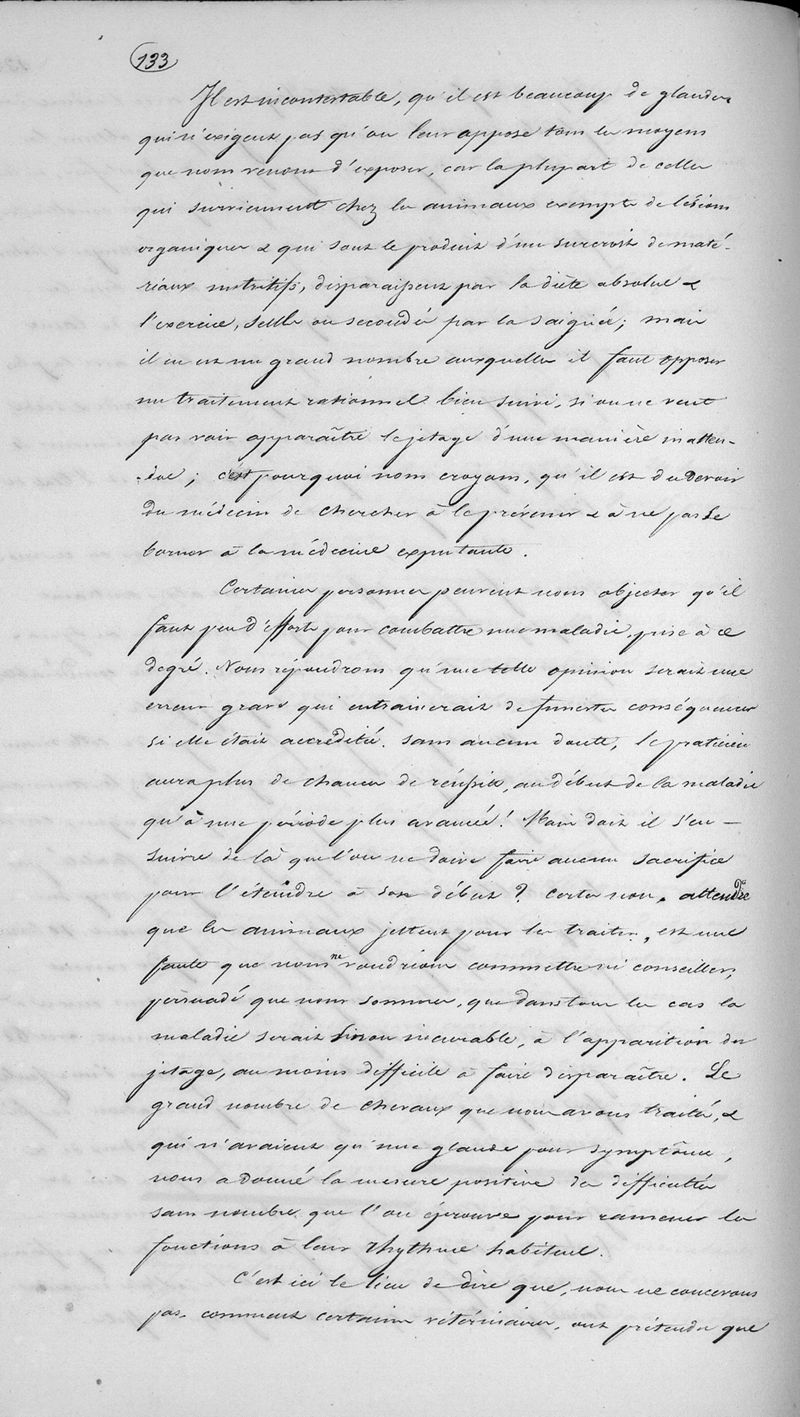 133
Il est incontestable, qu'il est beaucoup de glandes
qui n'exigent pas qu'on leur oppose tous les moyens
que nous venons d'exposer, car la plupart de celles
qui surviennent chez les animaux exempts de lésions
organiques & qui sont le produit d'un surcroit de maté-
riaux nutritifs, disparaissent par la diète absolue &
l'exercice, seuls ou secondés par la saignée; mais
il en est un grand nombre auxquelles il faut opposer
un traitement rationnel bien suivi, si on ne veut
pas voir apparaître le jetage d'une manière inatten-
due; c'est pourquoi nous croyons, qu'il est du devoir
du médecin de chercher à le prévenir & à ne pas se
borner à la médecine expectante.
Certaines personnes peuvent nous objecter qu'il
faut peu d'efforts pour combattre une maladie prise à ce
degré. Nous répondrons qu'une telle opinion serait une
erreur grave qui entrainerait de funestes conséquences
si elle était accréditée. sans aucun doute, le praticien
aura plus de chances de réussite, au début de la maladie
qu'à une période plus avancée! Mais doit il s'en-
suivre de là que l'on ne doive faire aucun sacrifice
pour l'éteindre à son début? certes non. attendre
que les animaux jettent pour les traiter, est une
faute que nous ne voudrions commettre ni conseiller,
persuadé que nous sommes, que dans tous les cas la
maladie serait sinon incurable, à l'apparition du
jetage, au moins difficile à faire disparaître. Le
grand nombre de chevaux que nous avons traités, &
qui n'avaient qu'une glande pour symptôme,
nous a donné la mesure positive des difficultés
sans nombre que l'on éprouve pour ramener les
fonctions à leur rhythme habituel.
C'est ici le lieu de dire que, nous ne concevons
pas comment certains vétérinaires, ont prétendu que